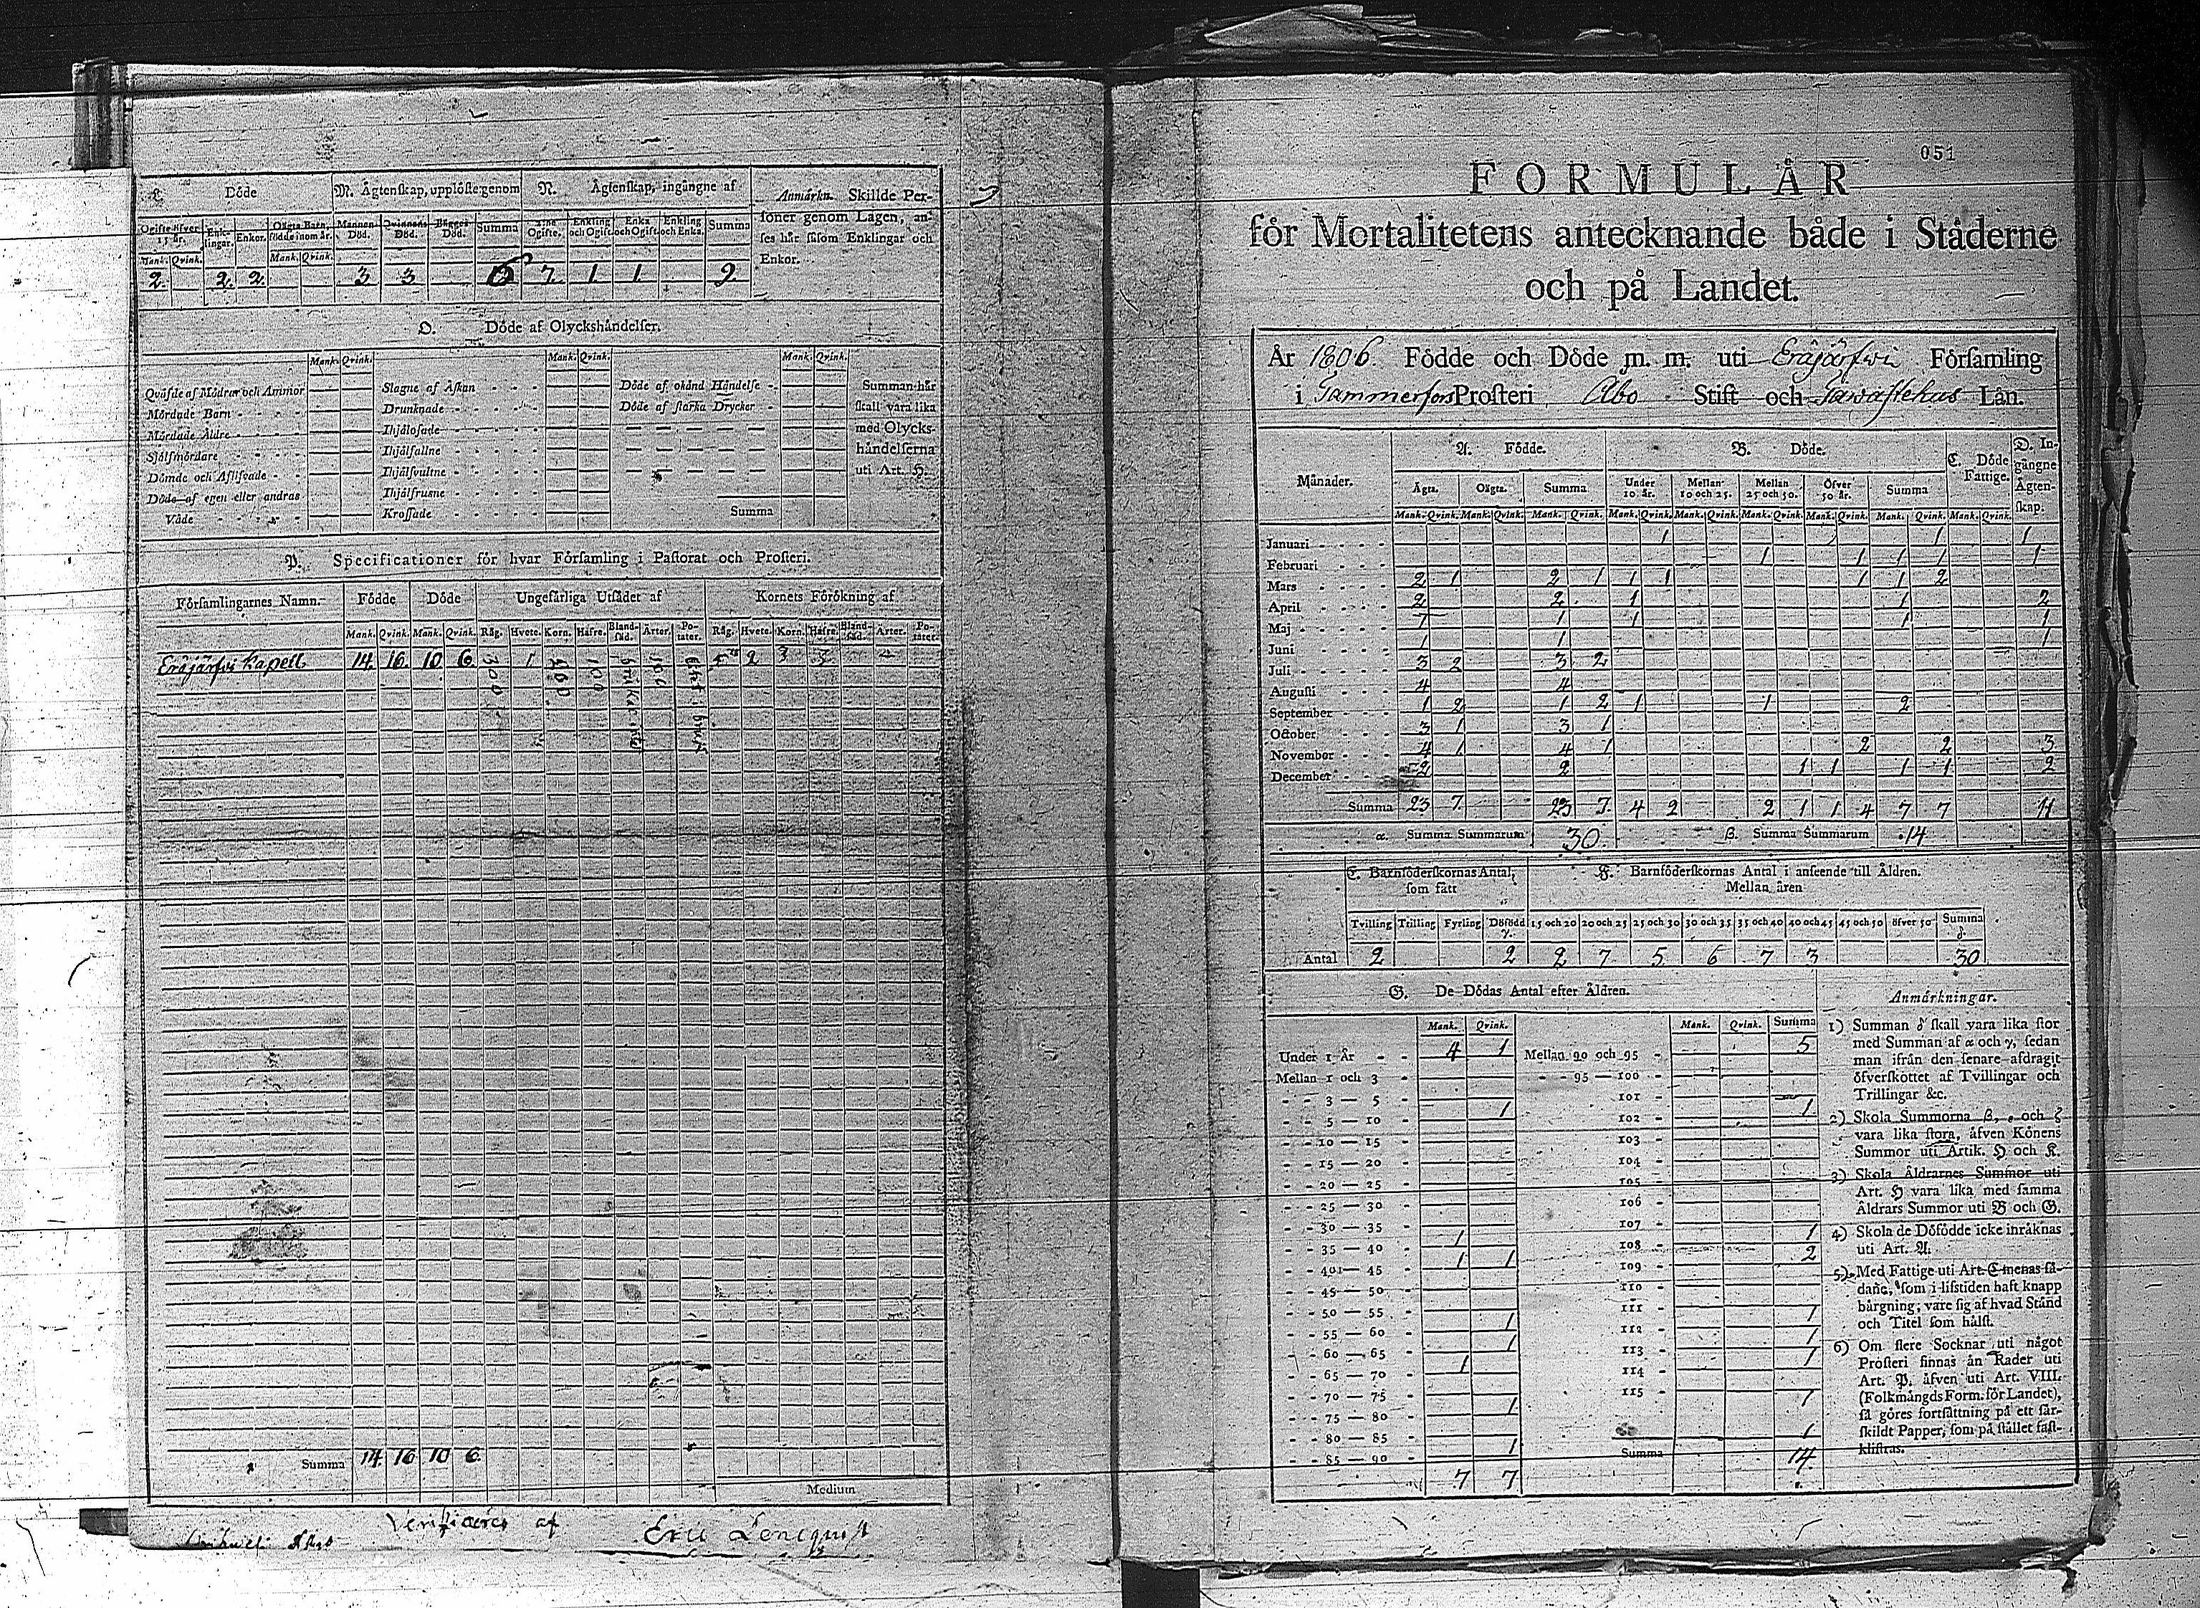 L. Döde M. Ägtenskap, upplöste genom N. Ägtenskap, ingångne af Anmärkn. Skillde Per-
soner genom Lagen, an-
ses här såsom Enklingar och
Enkor.
Ogifte öfver 15 år. Enk-lingar. Enkor. Oägta Barn, födde inom år. Mannens Död. Qvinnans Död. Bägges Död. Summa Ogifte. Enkling och Ogift. Enka och Ogift. Enkling och Enka. Summa
Mank. Qvink. Mank. Qvink.
2. 2. 2. 3 3 6 7. 1 1 9
O. Döde af Olyckshändelser.
Mank. Qvink. Mank. Qvink. Mank. Qvink.
Qväfde af Mödrar och Ammor Slagne af Åskan Döde af okänd Händelse Summan här
Mördade Barn Drunknade Döde af starka Drycker skall vara lika
Mördade Äldre Ihjälosade med Olycks-
Sjelfmördare Ihjälfallne händelserna
Dömde och Aflifvade Ihjälsvultne uti Art. H.
Döde af egen eller andras Ihjälfrusne
Våde Krossade Summa
P. Specificationer för hvar Församling i Pastorat och Prosteri.
Församlingarnes Namn. Födde Döde Ungefärliga Utsädet af Kornets Förökning af
Mank. Qvink. Mank. Qvink. Råg. Hvete. Korn. Hafre. Bland-säd. Ärter. Po-tater. Råg. Hvete. Korn. Hafre. Bland-säd. Ärter. Po-tater.
Eräjärfvi Kapell. 14. 16. 10 6. 300 1 100 2 3
Summa 14 16 10 6.
Medium
Verificeras af Eric Lencqvist
051
FORMULÄR
för Mortalitetens antecknande både i Städerne
och på Landet.
År 1806. Födde och Döde m. m. uti Eräjärfwi Församling
i Tammerfors Prosteri Åbo Stift och Tawastehus Län.
Månader. A. Födde. B. Döde. C. Döde Fattige. D. In-gångne Ägten-skap.
Ägta. Oägta. Summa Under 10 år. Mellan 10 och 25. Mellan 25 och 50. Öfver 50 år. Summa
Mank. Qvink. Mank. Qvink. Mank. Qvink. Mank. Qvink. Mank. Qvink. Mank. Qvink. Mank. Qvink. Mank. Qvink. Mank. Qvink.
Januari 1 1 1
Februari 1 1 1 1 1
Mars 2 1 2 1 1 1 1 1 2
April 2 2 1 1 2
Maj 1 1 1 1 1
Juni 1 1 1
Juli 3 2 3 2
Augusti 4 4
September 1 2 1 2 1 1 2
October 3 1 3 1
November 4 1 4 1 2 2 3
December 2 2 1 1 1 1 2
Summa 23 7 23 7 4 2 2 1 1 4 7 7 11
α. Summa Summarum 30. β. Summa Summarum 14
E. Barnföderskornas Antal, som fått F. Barnföderskornas Antal i anseende till Åldren.
Mellan åren
Tvilling Trilling Fyrling Döfödd γ. 15 och 20 20 och 25 25 och 30 30 och 35 35 och 40 40 och 45 45 och 50 öfver 50 Summa δ.
Antal 2 2 2 7 5 6 7 3 30
G. De Dödas Antal efter Åldren.
Mank. Qvink. Mank. Qvink. Summa
Under 1 År 4 1 Mellan 90 och 95 5
Mellan 1 och 3 95 — 100
3 — 5 101
5 — 10 1 102 1
10 — 15 103
15 — 20 104
20 — 25 105
25 — 30 106
30 — 35 107
35 — 40 1 108 1
40 — 45 1 1 109 2
45 — 50 110
50 — 55 111
55 — 60 1 112 1
60 — 65 1 113 1
65 — 70 1 114 1
70 — 75 115
75 — 80 1 1
80 — 85
85 — 90 1 1
7 7 Summa 14.
Anmärkningar.
1) Summan δ skall vara lika stor
med Summan af α och γ, sedan
man ifrån den senare afdragit
öfverskottet af Tvillingar och
Trillingar &c.
2) Skola Summorna β, ε och ζ
vara lika stora, äfven Könens
Summor uti Artik. H och K.
3) Skola Åldrarnes Summor uti
Art. H vara lika med samma
Åldrars Summor uti B och G.
4) Skola de Döfödde icke inräknas
uti Art. A.
5) Med Fattige uti Art. C menas så-
dane, som i lifstiden haft knapp
bärgning, vare sig af hvad Stånd
och Titel som hälst.
6) Om flere Socknar uti något
Prosteri finnas än Rader uti
Art. P. äfven uti Art. VIII.
(Folkmängds Form. för Landet),
så göres fortsättning på ett sär-
skildt Papper, som på stället fast-
klistras.